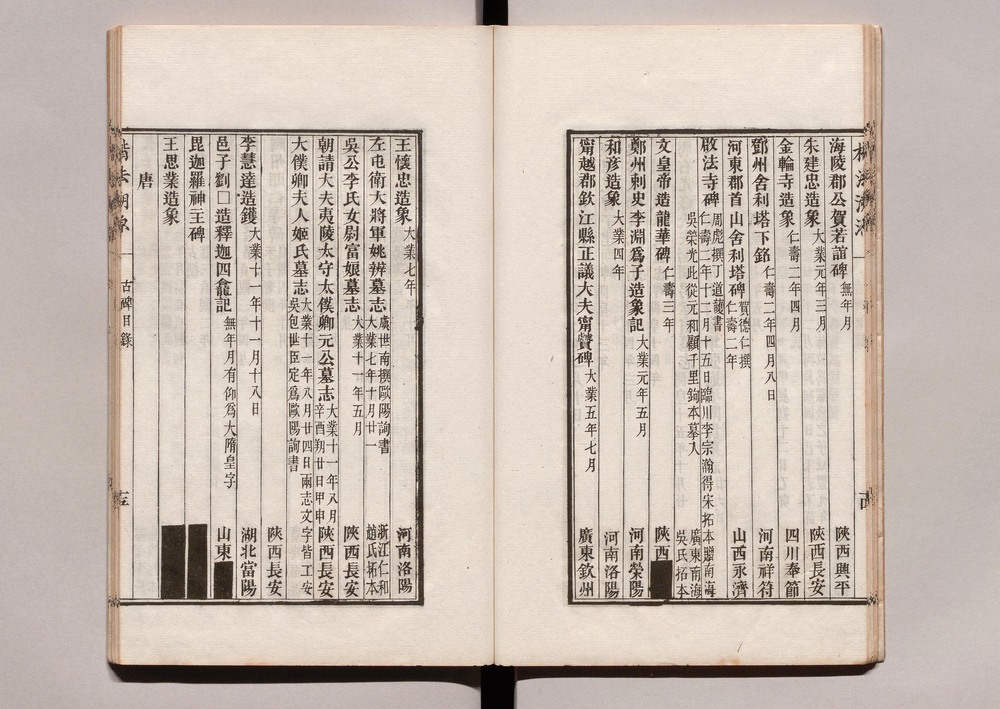 海陵郡公賀若誼碑 無年月 陝西興平
朱建忠造象 大業元年三月 陝西長安
金輪寺造象 仁壽二年四月 四川奉節
鄧州舍利塔下銘 仁壽二年四月八日 河南祥符
河東郡首山舍利塔碑 賀德仁撰 仁壽二年 山西永濟
啟法寺碑 周彪撰丁道護書 仁壽二年十二月十五日臨川李宗瀚得宋拓本贈南海
吳榮光此從元和顧千里鉤本摹入 廣東南海吳氏拓本
文皇帝造龍華碑 仁壽三年 陝西
鄭州刺史李淵為子造象記 大業元年五月 河南滎陽
和彥造象 大業四年 河南洛陽
甯越郡欽江縣正議大夫甯贙碑 大業五年七月 廣東欽州
王懷忠造象 大業七年 河南洛陽
左屯衛大將軍姚辨墓志 虞世南撰歐陽詢書 大業七年十月廿一 浙江仁和趙氏拓本
吳公李氏女尉富娘墓志 大業十一年五月 陝西長安
朝請大夫夷陵太守太僕卿元公墓志 大業十一年八月辛酉朔廿日甲申 陝西長安
大僕卿夫人姬氏墓志 大業十一年八月廿四日兩志文字皆工安吳包世臣定為歐陽詢書 陝西長安
李慧達造鑊 大業十一年十一月十八日 湖北當陽
邑子劉□造釋迦四龕記 無年月有仰為大隋皇字 山東
毘迦羅神王碑
王思業造象
唐
古碑目錄